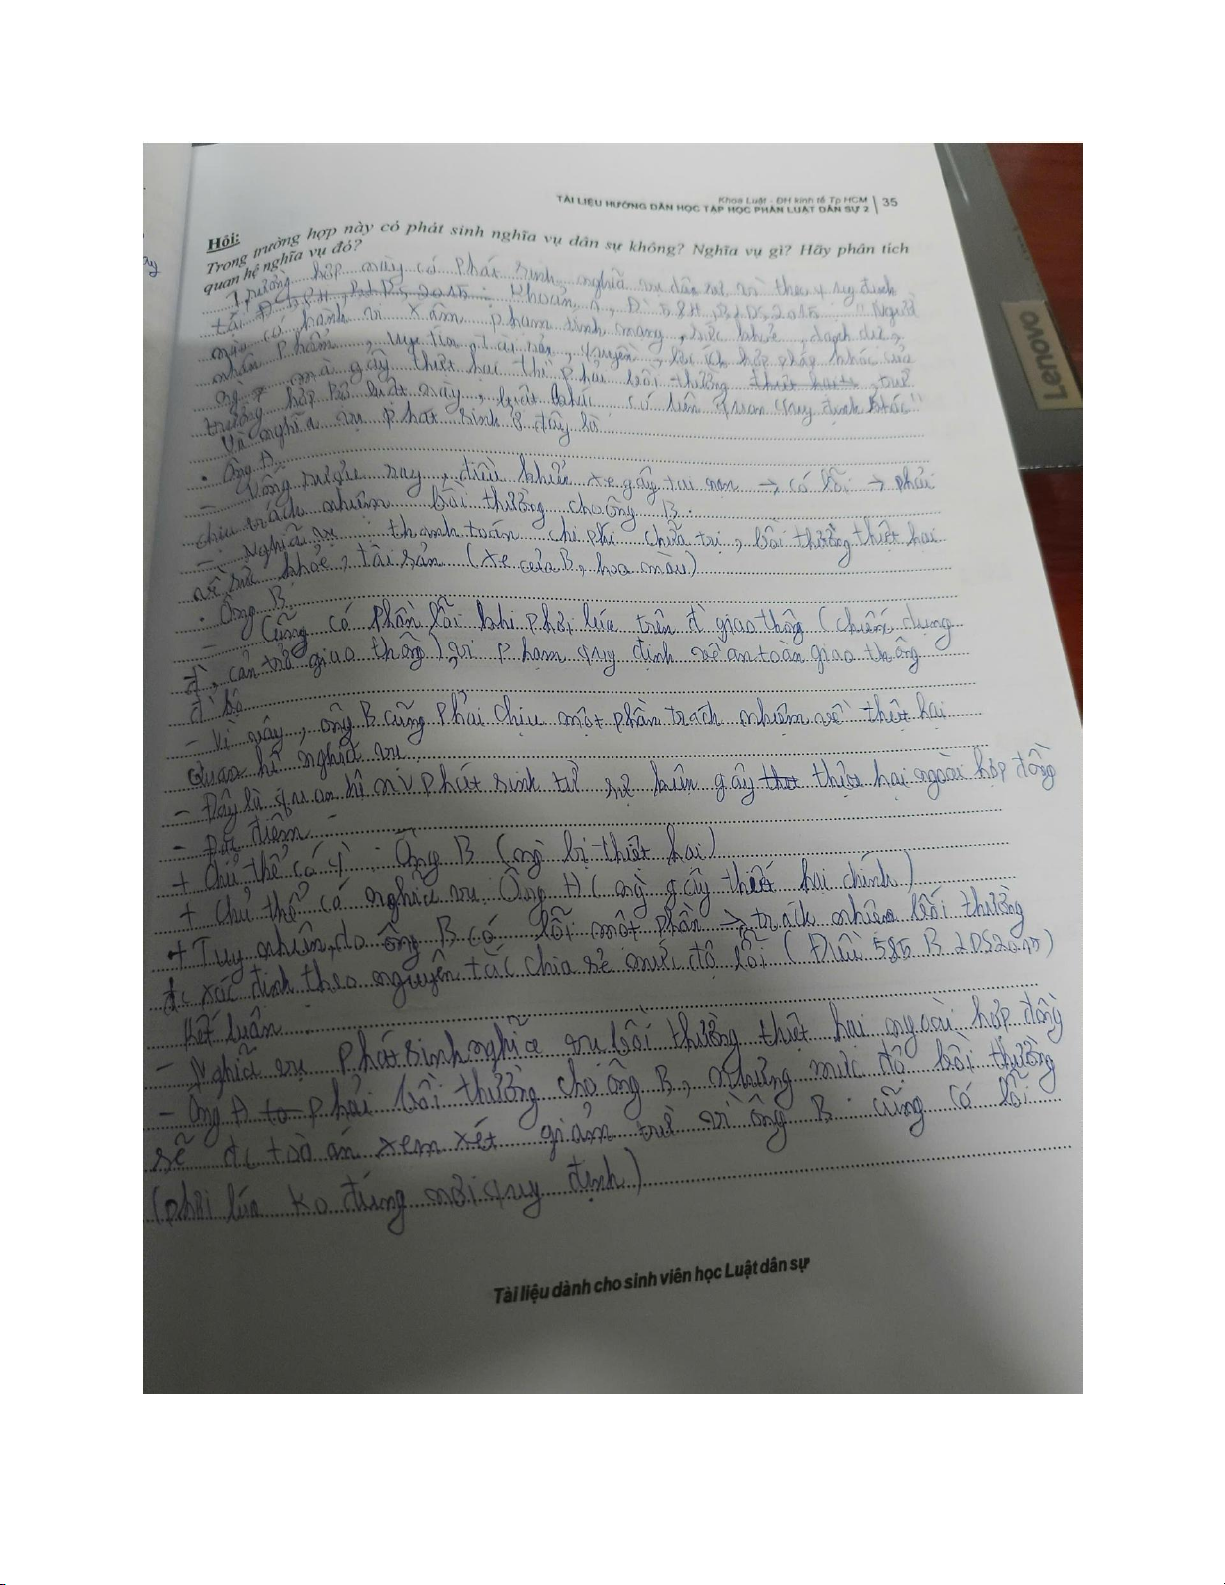 Khoa Luật - ĐH kinh tế Tp HCM
TÀI LIỆU HƯỚNG DẪN HỌC TẬP HỌC PHẦN LUẬT DÂN SỰ 2 | 35
Hỏi:
Trong trường hợp này có phát sinh nghĩa vụ dân sự không? Nghĩa vụ gì? Hãy phân tích
quan hệ nghĩa vụ đó?
Trường hợp này có phát sinh nghĩa vụ dân sự vì theo quy định
tại Khoản 1, Đ 584, BLDS 2015: "Người
nào có hành vi xâm phạm tính mạng, sức khoẻ, danh dự,
nhân phẩm, uy tín, tài sản, quyền, lợi ích hợp pháp khác của
ng` mà gây thiệt hại thì phải bồi thường, trừ
trường hợp Bộ luật này, luật khác có liên quan quy định khác"
Và nghĩa vụ phát sinh ở đây là
• Ông A
- Uống rượu say, điều khiển xe gây tai nạn → có lỗi → phải
chịu trách nhiệm bồi thường cho ông B.
- Nghĩa vụ: thanh toán chi phí chữa trị, bồi thường thiệt hại
về sức khỏe, tài sản (xe của B, hoa màu)
• Ông B
- Cũng có phần lỗi khi phơi lúa trên đ` giao thông (chiếm dụng
đ`, cản trở giao thông), vi phạm quy định về an toàn giao thông
đ` bộ
- Vì vậy, ông B cũng phải chịu một phần trách nhiệm về thiệt hại
Quan hệ nghĩa vụ
- Đây là quan hệ nv phát sinh từ sự kiện gây thiệt hại ngoài hợp đồng
- Đặc điểm
+ Chủ thể có q`: Ông B (ng` bị thiệt hại)
+ Chủ thể có nghĩa vụ: Ông A (ng` gây thiệt hại chính)
+ Tuy nhiên, do ông B có lỗi một phần → trách nhiệm bồi thường
đc xác định theo nguyên tắc chia sẻ mức độ lỗi (Điều 585 BLDS 2015)
Kết luận
- Nghĩa vụ phát sinh nghĩa vụ bồi thường thiệt hại ngoài hợp đồng
- Ông A phải bồi thường cho ông B, nhưng mức độ bồi thường
sẽ đc toà án xem xét giảm trừ vì ông B cũng có lỗi
(phơi lúa ko đúng nơi quy định)
Tài liệu dành cho sinh viên học Luật dân sự
Lenovo